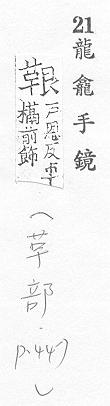 21 龍龕手鏡
鞎
戸恩反車
前飾
(革部. p.447)